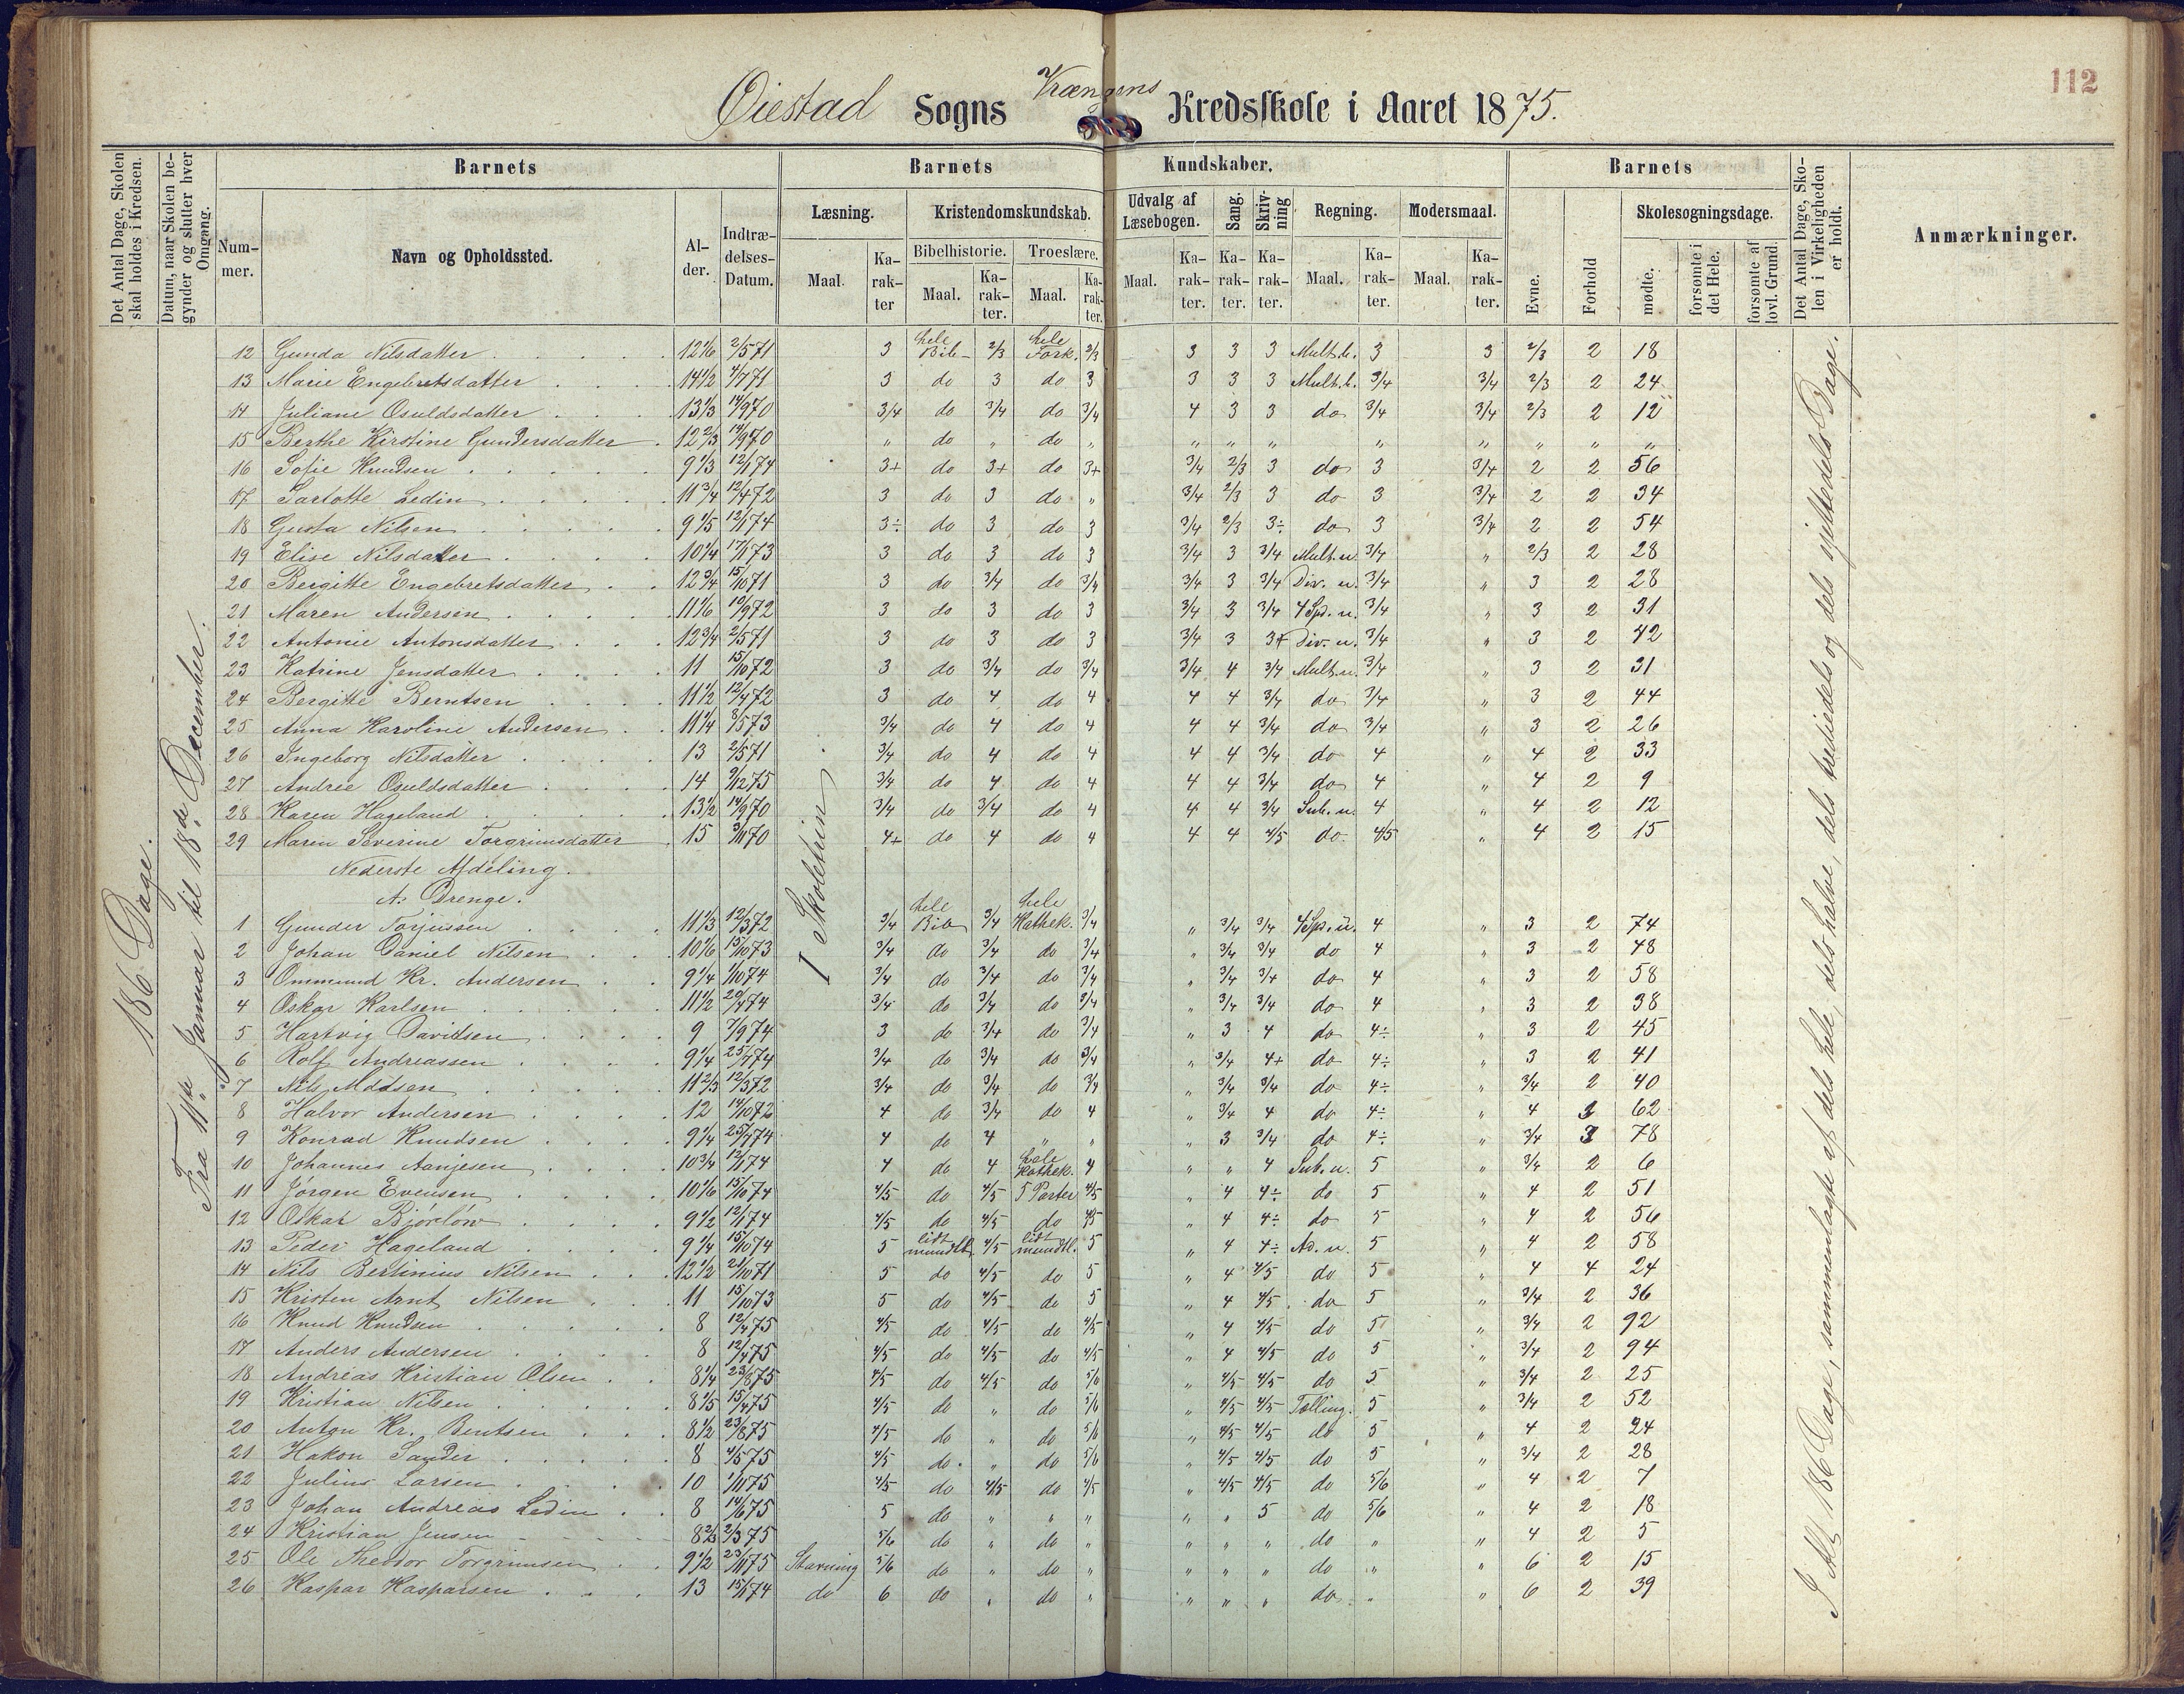 112
Øiestad Sogns Kredsskole i Aaret 1875.
Det Antal Dage, Skolen skal holdes i Kredsen.
Datum, naar Skolen begynder og slutter hver Omgang.
Barnets
Barnets Kundskaber.
Barnets
Det Antal Dage, Skolen i Virkeligheden er holdt.
Anmærkninger.
Nummer. Navn og Opholdssted. Alder. Indtrædelses-Datum.
Læsning. Kristendomskundskab. Udvalg af Læsebogen. Sang. Skrivning Regning. Modersmaal.
Evne. Forhold Skolesøgningsdage.
Bibelhistorie. Troeslære.
Maal. Karakter Maal. Karakter. Maal. Karakter. Maal. Karakter. Karakter. Karakter. Maal. Karakter. Maal. Karakter.
mødte. forsømte i det Hele. forsømte af lovl. Grund.
186 Dage.
Fra 11te Januar til 18de December.
I Skoletrin.
I Alt 186 Dage, sammenlagte af dels hele, dels halve, dels trediedels og dels fjerdedels Dage.
12 Gunda Nilsdatter 12 1/6 2/5 71 3 hele Bib 2/3 hele Fork. 2/3 3 3 3 Mult. b. 3 3 2/3 2 18
13 Marie Engebretsdatter 14 1/2 4/7 71 3 do 3 do 3 3 3 3 Mult. b. 3/4 3/4 2/3 2 24
14 Juliane Osuldsdatter 13 1/3 14/9 70 3/4 do 3/4 do 3/4 4 3 3 do 3/4 3/4 2/3 2 12
15 Berthe Kirstine Gundersdatter 12 2/3 14/9 70 " do " do " " " " " " " " "
16 Sofie Knudsen 9 1/3 12/1 74 3+ do 3+ do 3+ 3/4 2/3 3 do 3 3/4 2 2 56
17 Sarlotte Ledin 11 3/4 12/4 72 3 do 3 do " 3/4 2/3 3 do 3 3/4 2 2 34
18 Gusta Nilsen 9 1/5 12/1 74 3÷ do 3 do 3 3/4 2/3 3÷ do 3 3/4 2 2 54
19 Elise Nilsdatter 10 1/4 17/1 73 3 do 3 do 3 3/4 3 3/4 Mult. u. 3/4 " 2/3 2 28
20 Bergitte Engebretsdatter 12 3/4 15/10 71 3 do 3/4 do 3/4 3/4 3 3/4 Div. u. 3/4 " 3 2 28
21 Maren Andersen 11 1/6 10/9 72 3 do 3 do 3 3/4 3 3/4 4 Sp. u. 3/4 " 3 2 31
22 Antonie Antonsdatter 12 3/4 2/5 71 3 do 3 do 3 3/4 3 Div. u. 3/4 " 3 2 42
23 Katrine Jensdatter 11 15/10 72 3 do 3/4 do 3/4 3/4 4 3/4 Mult. u. 3/4 " 3 2 31
24 Bergitte Berntsen 11 1/2 12/4 72 3 do 4 do 4 4 4 3/4 do 3/4 " 3 2 44
25 Anna Karoline Andersen 11 1/4 8/5 73 3/4 do 4 do 4 4 4 3/4 do 3/4 " 3 2 26
26 Ingeborg Nilsdatter 13 2/5 71 3/4 do 4 do 4 4 4 3/4 do 4 " 4 2 33
27 Andree Osuldsdatter 14 9/12 75 3/4 do 4 do 4 4 4 3/4 do 4 " 4 2 9
28 Karen Hageland 13 1/2 14/9 70 3/4 do 3/4 do 4 4 4 3/4 Sub. u. 4 " 4 2 12
29 Maren Severine Torgrimsdatter 15 3/11 70 4+ do 4 do 4 4 4 4/5 do. 4/5 " 4 2 15
Nederste Afdeling.
A. Drenge.
1 Gunder Torjussen 11 1/3 12/3 72 3/4 hele Bib 3/4 hele Kathek. 3/4 " 3/4 3/4 4 Sp. u. 4 " 3 2 74
2 Johan Daniel Nilsen 10 1/6 15/10 73 3/4 do 3/4 do 3/4 " 3/4 3/4 do 4 " 3 2 48
3 Ommund Kr. Andersen 9 1/4 1/10 74 3/4 do 3/4 do 3/4 " 3/4 3/4 do 4 " 3 2 58
4 Oskar Karlsen 11 1/2 20/4 74 3/4 do 3/4 do 3/4 " 3/4 3/4 do 4 " 3 2 38
5 Hartvig Davidsen 9 7/9 74 3 do 3/4 do 3/4 " 3 4 do 4÷ " 3 2 45
6 Rolf Andreassen 9 1/4 25/4 74 3/4 do 3/4 do 3/4 " 3/4 4+ do 4÷ " 3 2 41
7 Nils Madsen 11 2/3 12/3 72 3/4 do 3/4 do 3/4 " 3/4 3/4 do 4÷ " 3/4 2 40
8 Halvor Andersen 12 14/10 72 4 do 3/4 do 4 " 3/4 4 do 4÷ " 4 62
9 Konrad Knudsen 9 1/4 25/4 74 4 do 4 " " " 3 3/4 do 4÷ " 3/4 3 78
10 Johannes Aanjesen 10 3/4 12/1 74 4 do 4 hele Kathek. 4 " " 4 Sub. u. 5 " 3/4 2 6
11 Jørgen Evensen 10 1/6 15/10 74 4/5 do 4/5 5 Parter 4/5 " 4 4÷ do 5 " 4 2 51
12 Oskar Bjørløw 9 1/2 12/1 74 4/5 do 4/5 do 4/5 " 4 4÷ do 5 " 4 2 56
13 Peder Hageland 9 1/4 15/10 74 5 lidt mundtl. 4/5 lidt mundtl. 5 " 4 4÷ Ad. u. 5 " 4 2 58
14 Nils Bertinius Nilsen 12 1/2 21/10 71 5 do 4/5 do 5 " 4 4/5 do 5 " 4 4 24
15 Kristen Arnt Nilsen 11 15/10 73 5 do 4/5 do 5 " 4 4/5 do 5 " 3/4 2 36
16 Knud Knudsen 8 12/4 75 4/5 do 4/5 do 4/5 " 4 4/5 do 5 " 3/4 2 92
17 Anders Andersen 8 12/4 75 4/5 do 4/5 do 4/5 " 4 4/5 do 5 " 3/4 2 94
18 Andreas Kristian Olsen 8 1/4 23/8 75 4/5 do 4/5 do 5/6 " 4/5 4/5 do 5 " 3/4 2 25
19 Kristian Nilsen 8 1/5 15/4 75 4/5 do " do 5/6 " 4/5 4/5 Tælling. 5 " 3/4 2 52
20 Anton Kr. Bentsen 8 1/2 23/8 75 4/5 do " do 5/6 " 4/5 4/5 do 5 " 4 2 24
21 Hakon Sander 8 4/5 75 4/5 do. " do 5/6 " 4/5 4/5 do 5 " 3/4 2 28
22 Julius Larsen 10 1/11 75 4/5 do 4/5 do 4/5 " 4/5 4/5 do 5/6 " 4 2 7
23 Johan Andreas Ledin 8 14/6 75 5 do " " " " " 5 do 5/6 " 4 2 18
24 Kristian Jensen 8 2/3 2/3 75 5/6 do " do " " " " do " " 4 2 5
25 Ole Theodor Torgrimsen 9 1/2 23/11 75 Stavning 5/6 do " do " " " " do " " 6 2 15
26 Kaspar Kasparsen 13 15/1 74 do 6 do " do " " " " do " " 6 2 39